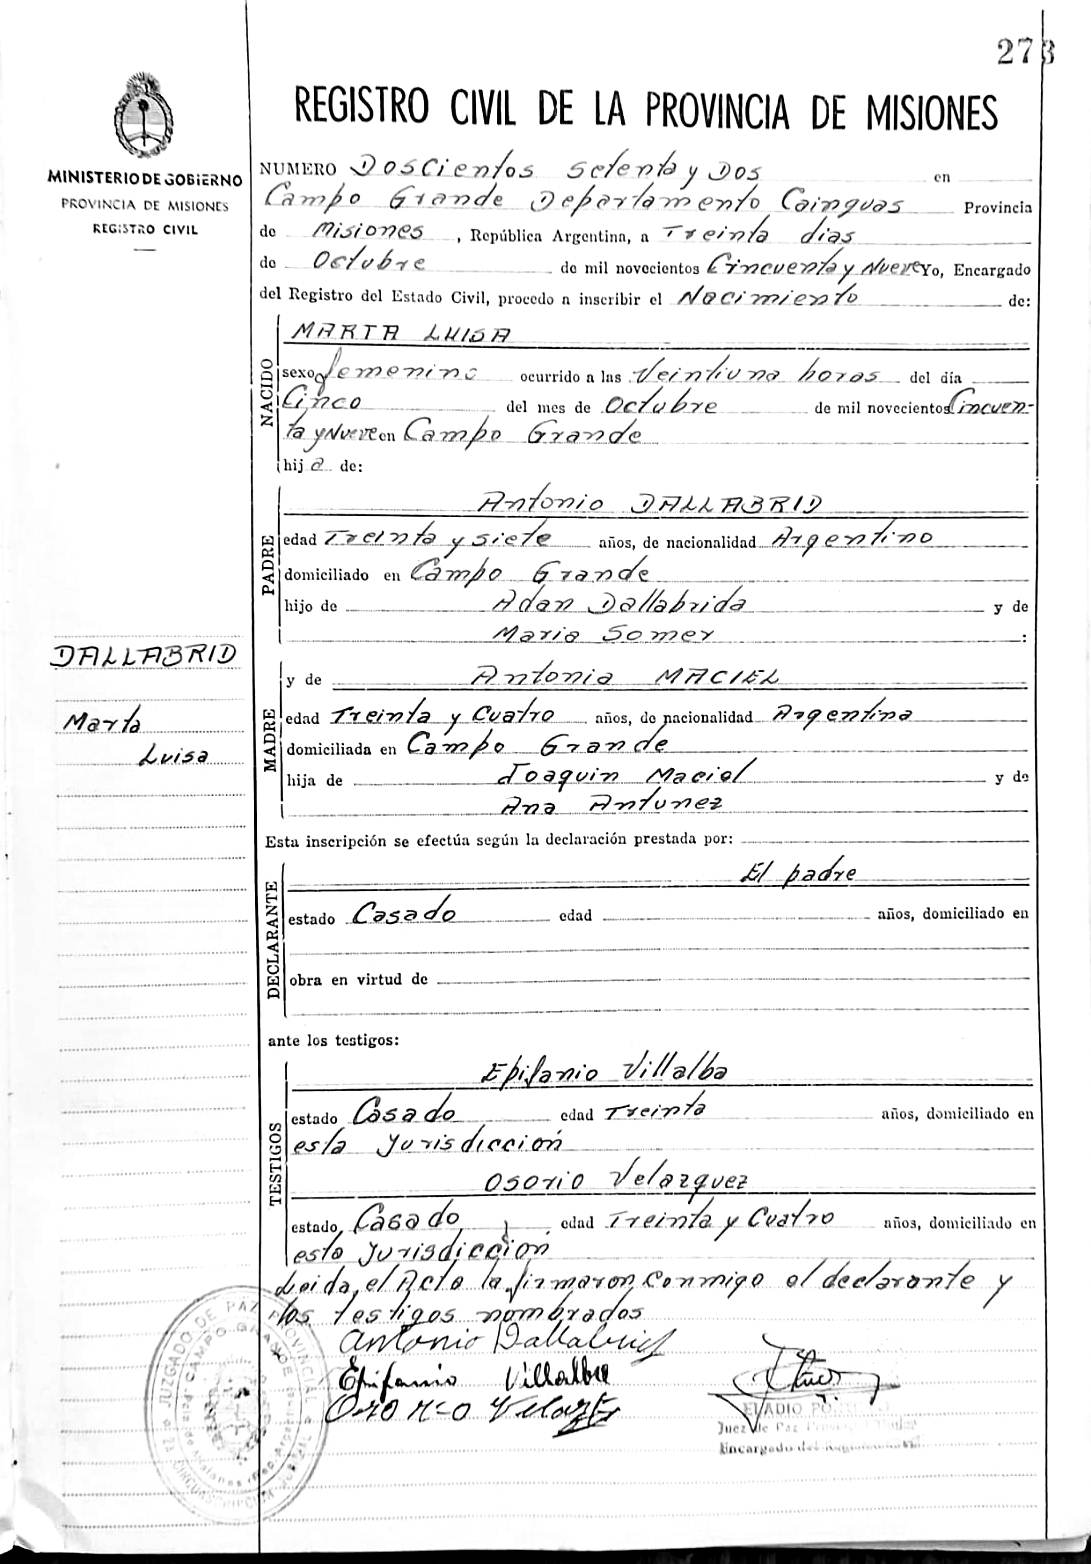 273
REGISTRO CIVIL DE LA PROVINCIA DE MISIONES
MINISTERIO DE GOBIERNO
PROVINCIA DE MISIONES
REGISTRO CIVIL
NUMERO Doscientos setenta y Dos en
Campo Grande Departamento Cainguas Provincia
de Misiones, República Argentina, a Treinta dias
de Octubre de mil novecientos Cincuenta y Nueve Yo, Encargado
del Registro del Estado Civil, procedo a inscribir el Nacimiento de:
NACIDO
MARTA LUISA
sexo femenino ocurrido a las Veintiuna horas del día
Cinco del mes de Octubre de mil novecientos Cincuen-
ta y Nueve en Campo Grande
hija de:
PADRE
Antonio DALLABRID
edad Treinta y siete años, de nacionalidad Argentino
domiciliado en Campo Grande
hijo de Adan Dallabrida y de
Maria Somer :
DALLABRID
Marta
Luisa
MADRE
y de Antonia MACIEL
edad Treinta y Cuatro años, de nacionalidad Argentina
domiciliada en Campo Grande
hija de Joaquin Maciel y de
Ana Antunez
Esta inscripción se efectúa según la declaración prestada por:
DECLARANTE
El padre
estado Casado edad años, domiciliado en
obra en virtud de
ante los testigos:
TESTIGOS
Epifanio Villalba
estado Casado edad Treinta años, domiciliado en
esta Jurisdicción
Osorio Velazquez
estado Casado edad Treinta y Cuatro años, domiciliado en
esta Jurisdicción
Leida, el Acta la firmaron conmigo el declarante y
los testigos nombrados
Antonio Dallabrid
Epifanio Villalba
JUZGADO DE PAZ PROVINCIAL
CAMPO GRANDE
ELADIO
Juez de Paz
Encargado del